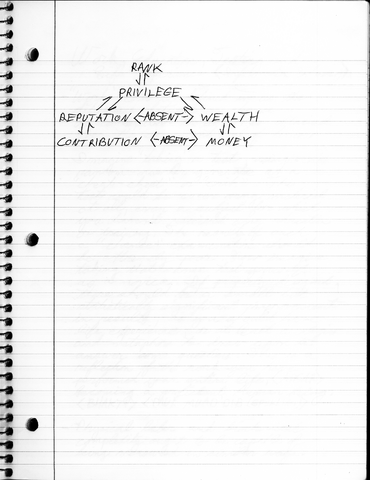 RANK
PRIVILEGE
REPUTATION <-ABSENT-> WEALTH
CONTRIBUTION <-ABSENT-> MONEY